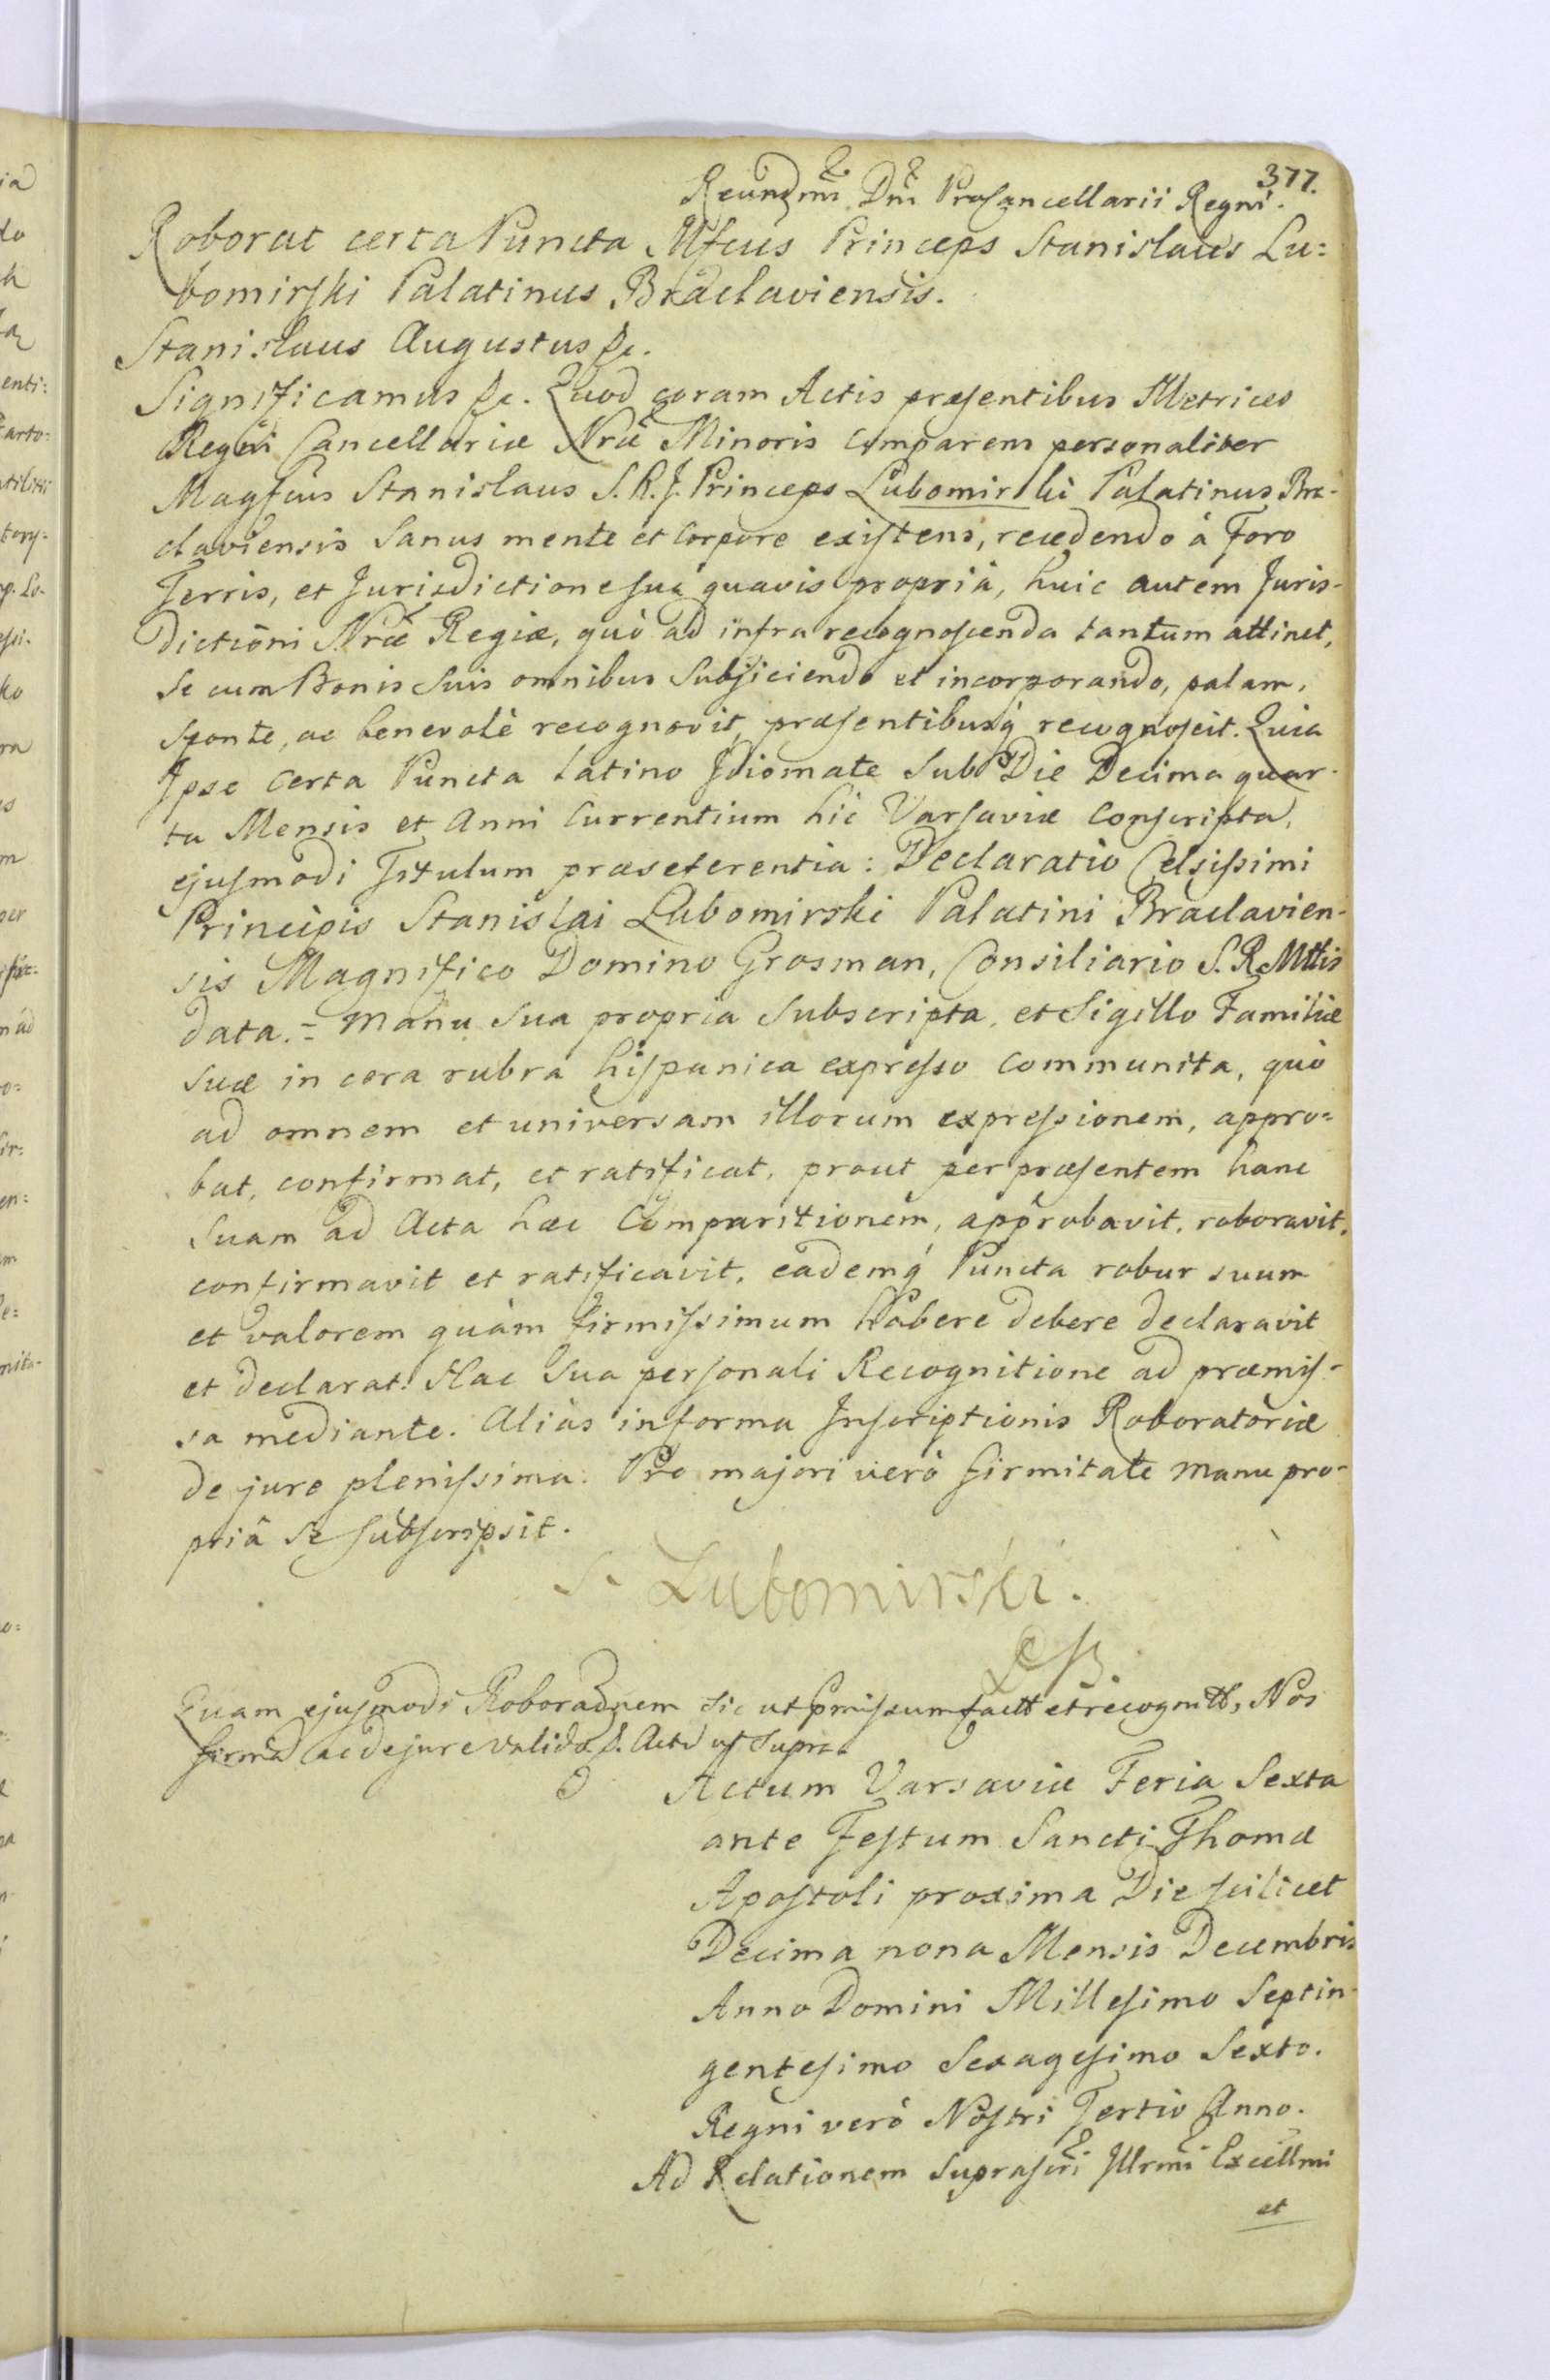 377.
Reundmi Dni ProCancellarii Regni.
Roborat certa Puncta Mfcus Princeps Stanislaus Lu=
bomirski Palatinus Braclaviensis.
Stanislaus Augustus &c.
Significamus &c. Quod coram Actis præsentibus Metrices
Regni Cancellariæ Nræ Minoris Comparens personaliter
Magfcus Stanislaus S. R. J. Princeps Lubomirski Palatinus Bra-
claviensis Sanus mente et Corpore existens, recedendo à Foro
Terris, et Jurisdictione sua quavis propriâ, huic autem Juris-
dictioni Nræ Regiæ, quò ad infra recognoscenda tantum attinet,
se cum Bonis Suis omnibus Subjiciendo et incorporando, palam,
sponte, ac benevolè recognovit, præsentibusq́ recognoscit. Quia
Ipse Certa Puncta Latino Jdiomate Sub Die Decima quar-
ta Mensis et Anni Currentium hic Varsaviæ Conscripta,
ejusmodi Titulum præseferentia: Declaratio Celsissimi
Principis Stanislai Lubomirski Palatini Braclavien-
sis Magnifico Domino Grosman, Consiliario S. R. Mttis
data.= Manu Sua propria Subscripta, et Sigillo Familiæ
suæ in cera rubra hispanica expresso Communita, quò
ad omnem et universam illorum expressionem, appro=
bat, confirmat, et ratificat, prout per præsentem hanc
Suam ad Acta hæc Comparitionem, approbavit, roboravit,
confirmavit et ratificavit, eademq́ Puncta robur suum
et valorem quàm firmissimum habere debere declaravit
et declarat. Hac Sua personali Recognitione ad præmis-
sa mediante. Aliàs in forma Inscriptionis Roboratoriæ
de jure plenissima. Pro majori verò firmitate manu pro-
priâ se subscripsit.
S. Lubomirski.
Quam ejusmodi Roboraõnem sic ut præmissum factt et recogntt, Nos
firma ac de jure valida &. Acta ut Supra.
Actum Varsaviæ Feria Sexta
ante Festum Sancti Thomæ
Apostoli proxima Die scilicet
Decima nona Mensis Decembris
Anno Domini Millesimo Septin-
gentesimo Sexagesimo Sexto.
Regni verò Nostri Tertio Anno.
Ad Relationem Suprascri Jllrmi Excellmi
et